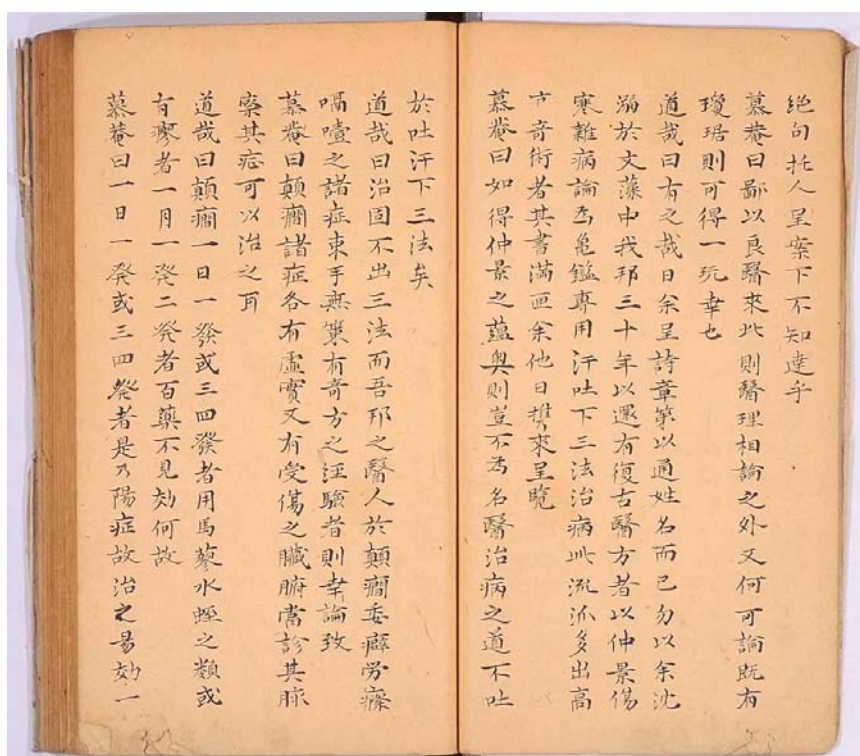 絶句托人呈案下不知達乎
慕菴曰鄙以良醫來此則醫理相論之外又何可論既有
瓊琚則可得一玩幸也
道哉曰有之哉日余呈詩章第以通姓名而已勿以余沈
溺於文藻中我邦三十年以還有復古醫方者以仲景傷
寒雜病論爲亀鑑專用汗吐下三法治病此流泒多出高
才奇術者其書滿匣余他日携來呈覽
慕菴曰如得仲景之蘊奧則豈不爲名醫治病之道不吐
於吐汗下三法矣
道哉曰治固不出三法而吾邦之醫人於顛癎委癖労瘵
嗝噎之諸症束手無策有奇方之経驗者則幸論致
慕菴曰顛癎諸症各有虛實又有受傷之臟腑當診其脉
察其症可以治之耳
道哉曰顛癎一日一發或三四發者用馬蓼水蛭之類或
有瘳者一月一癸二癸者百藥不見効何故
慕菴曰一日一癸或三四癸者是乃陽症故治之易効一